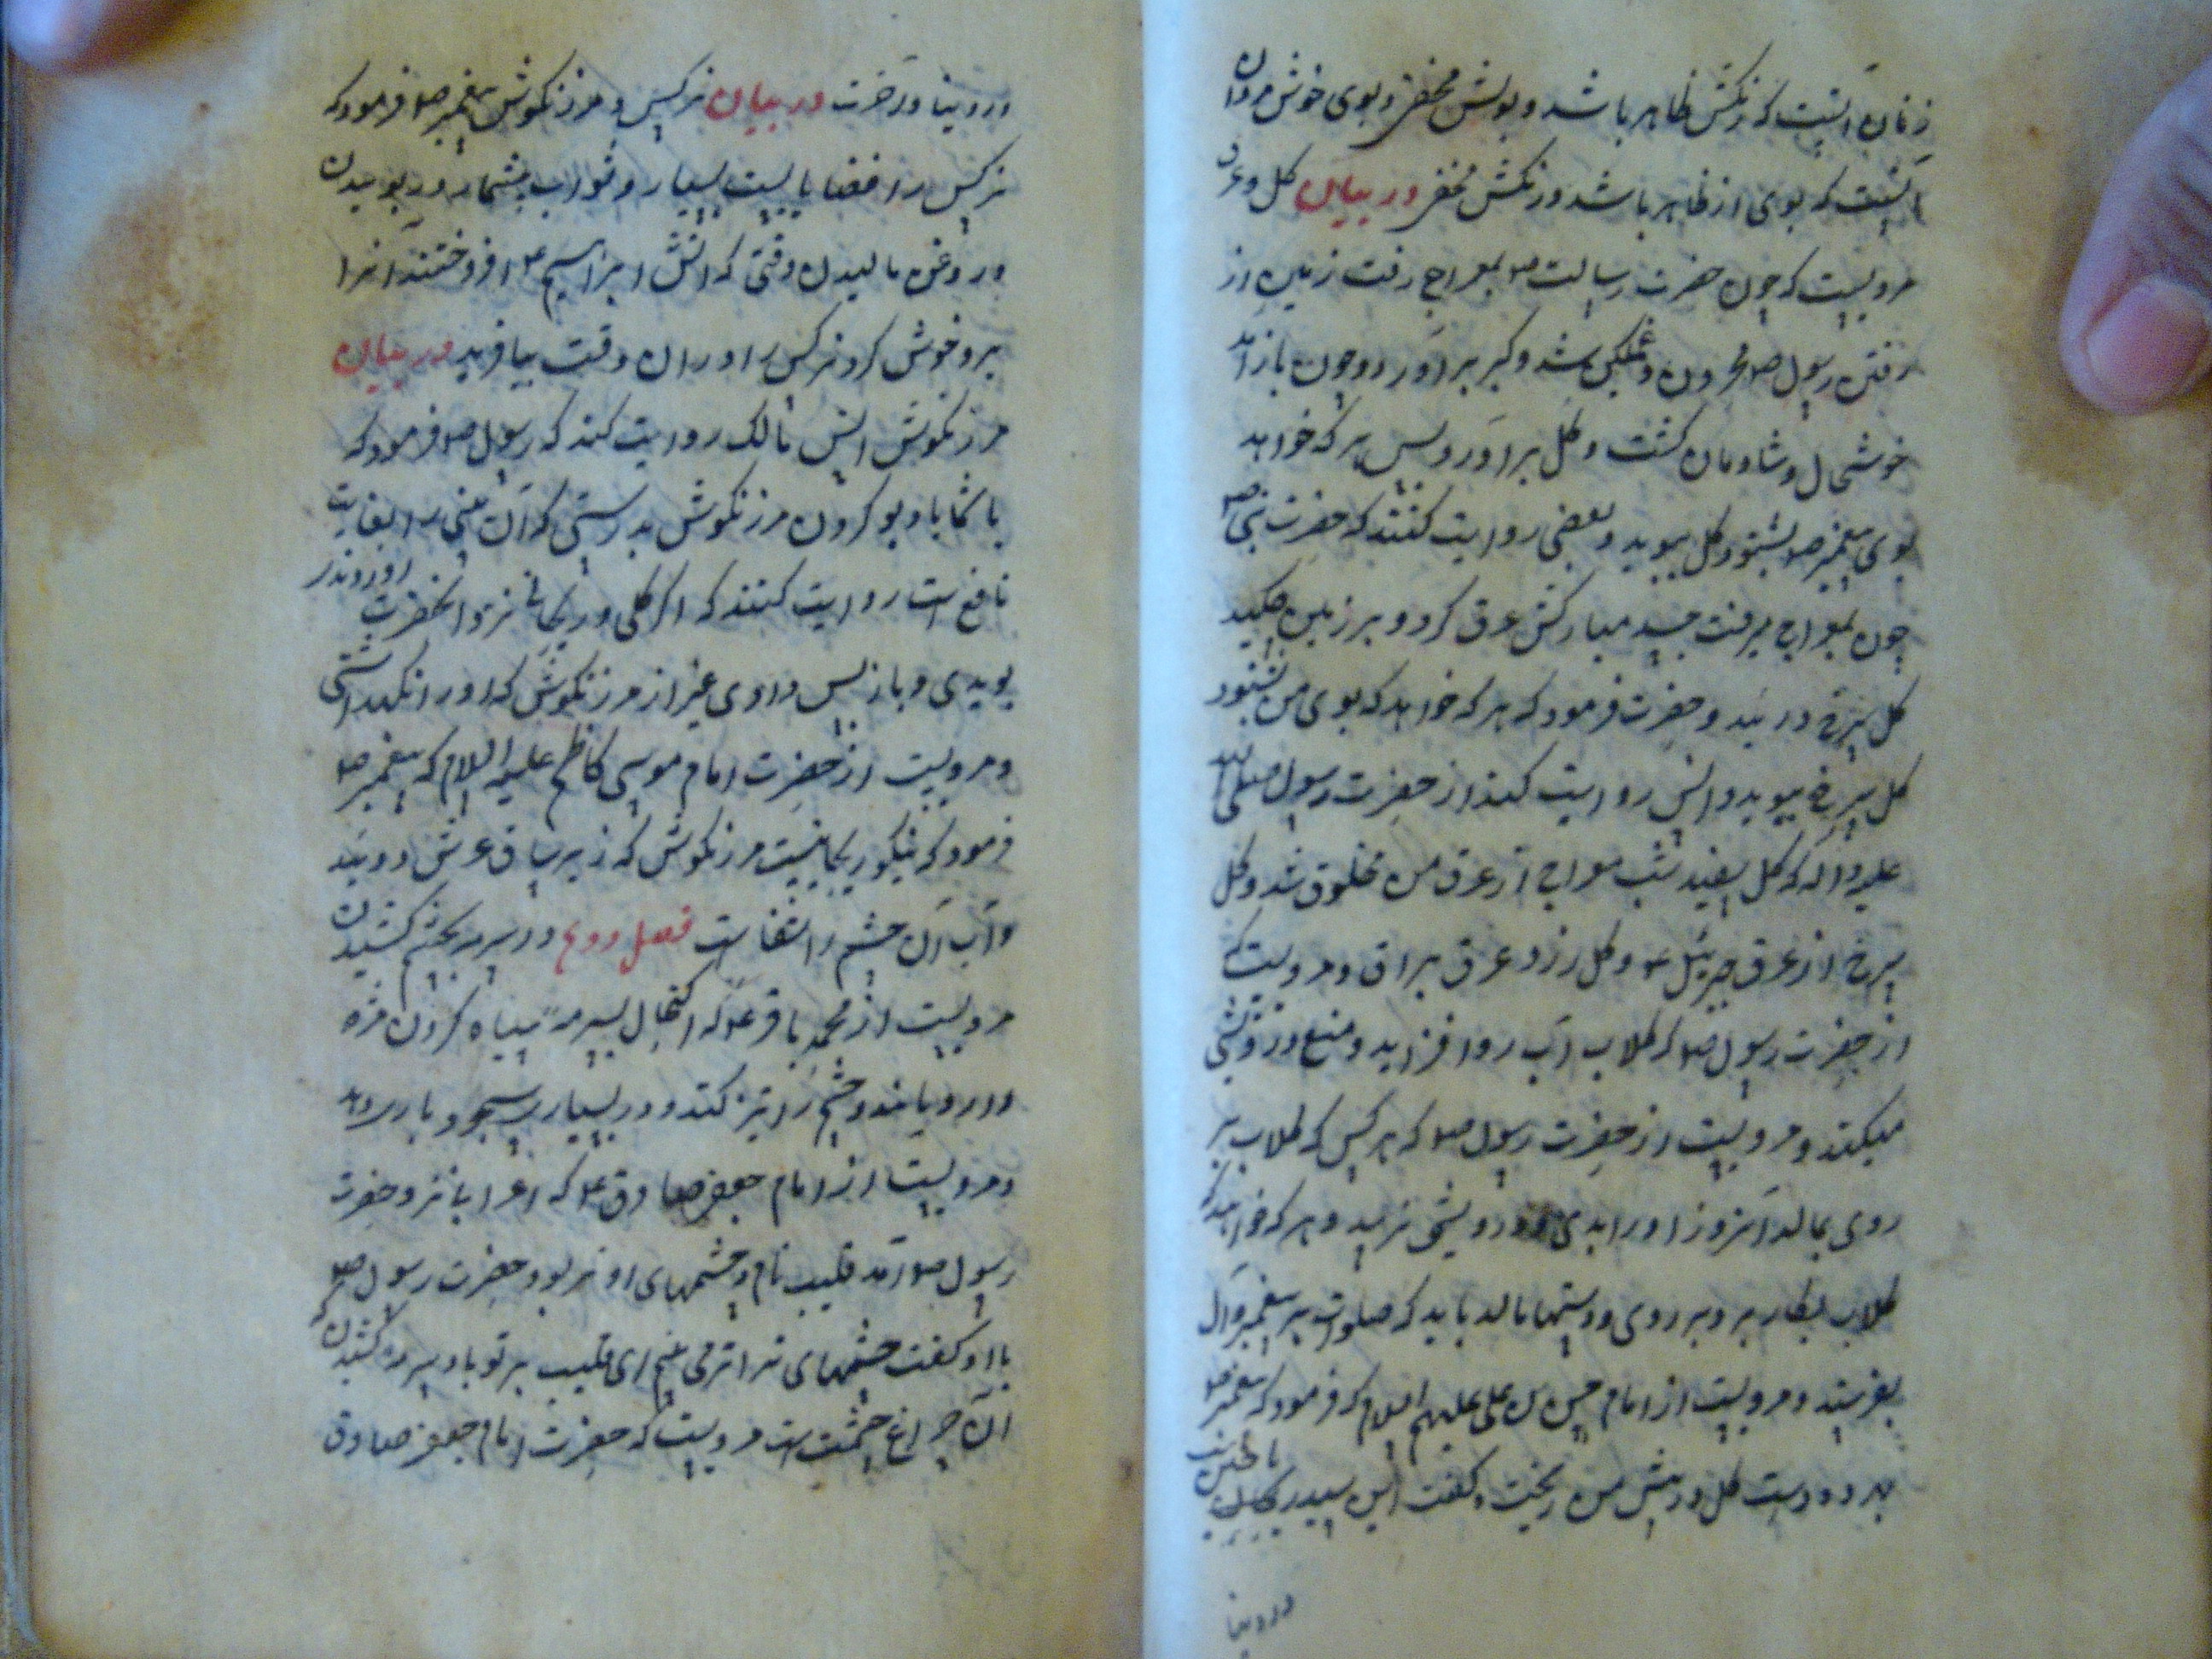 زنان آنست که رنکش ظاهر باشد و بویش مخفی و بوی خوش مردان
آنست که بوی از ظاهر باشد و رنکش مخفی در بیان کل و عرق
مرویست که چون حضرت رسالت ص بمعراج رفت زمین از
رفتن رسول ص محزون و غمکین شد و کبر برآورد و چون باز آمد
خوشحال و شادمان کشت و کل برآورد پس هر که خواهد
بوی پیغمبر ص بشنود کل ببوید و بعضی روایت کنند که حضرت نبی ص
چون بمعراج میرفت جسد مبارکش عرق کرد و بر زمین چکید
کل سرخ روئید و حضرت فرمود که هر که خواهد که بوی من بشنود
کل سرخ ببوید و انس روایت کند از حضرت رسول صلی الله
علیه و آله که کل سفید شب معراج از عرق من مخلوق شد و کل
سرخ از عرق جبرئیل ع و کل زرد از عرق براق و مرویست که
از حضرت رسول ص که کلاب آب رو افزاید و منع درویشی
میکند و مرویست از حضرت رسول ص که هر کس که کلاب بر
روی بمالد آنروز او را بدی و درویشی نرسد و هر که خواهد که
کلاب بکار برد بر روی و دستها مالد باید که صلوات بر پیغمبر و آل
بفرستد و مرویست از امام حسن بن علی علیهم السلام که فرمود که پیغمبر ص
بهر دو دست کل در پیش من ریخت و کفت این سید ریحانست
در دنیا
در دنیا و آخرت در بیان نرکس و مرزنکوش پیغمبر ص فرمود که
نرکس را فضایلیست بسیار و ثواب بیشمار در بوییدن
و روغن مالیدن وقتی که آتش ابراهیم ع افروختند آنرا
سرد و خوش کرد نرکس را در ان وقت بیافرید در بیان
مرزنکوش انس مالک روایت کند که رسول ص فرمود که
با شما باد بو کردن مرزنکوش بدرستی که آن بینی را بغایت
نافع است روایت کنند که اکر کلی و ریحانی نزد آنحضرت آوردندی
بویدی و باز پس دادی غیر از مرزنکوش که او را نکهداشتی
و مرویست از حضرت امام موسی کاظم علیه السلام که پیغمبر ص
فرمود که نیکو ریحانیست مرزنکوش که زیر ساق عرش روئید
و آب آن چشم را شفاست فصل دوم در سرمه بچشم کشیدن
مرویست از محمد باقر ع که اکتحال بسرمه سیاه کردن مژه
را رویاند و چشم را تیز کند و در بسیاری سجود یاری دهد
و مرویست از امام جعفر صادق ع که اعرابی نزد حضرت
رسول ص آمد قلیب نام و چشمهای او تر بود حضرت رسول ص
با او کفت چشمهای ترا تر می بینم ای قلیب بر تو باد بسرمه کشیدن که
آن چراغ چشمت است مرویست که حضرت امام جعفر صادق